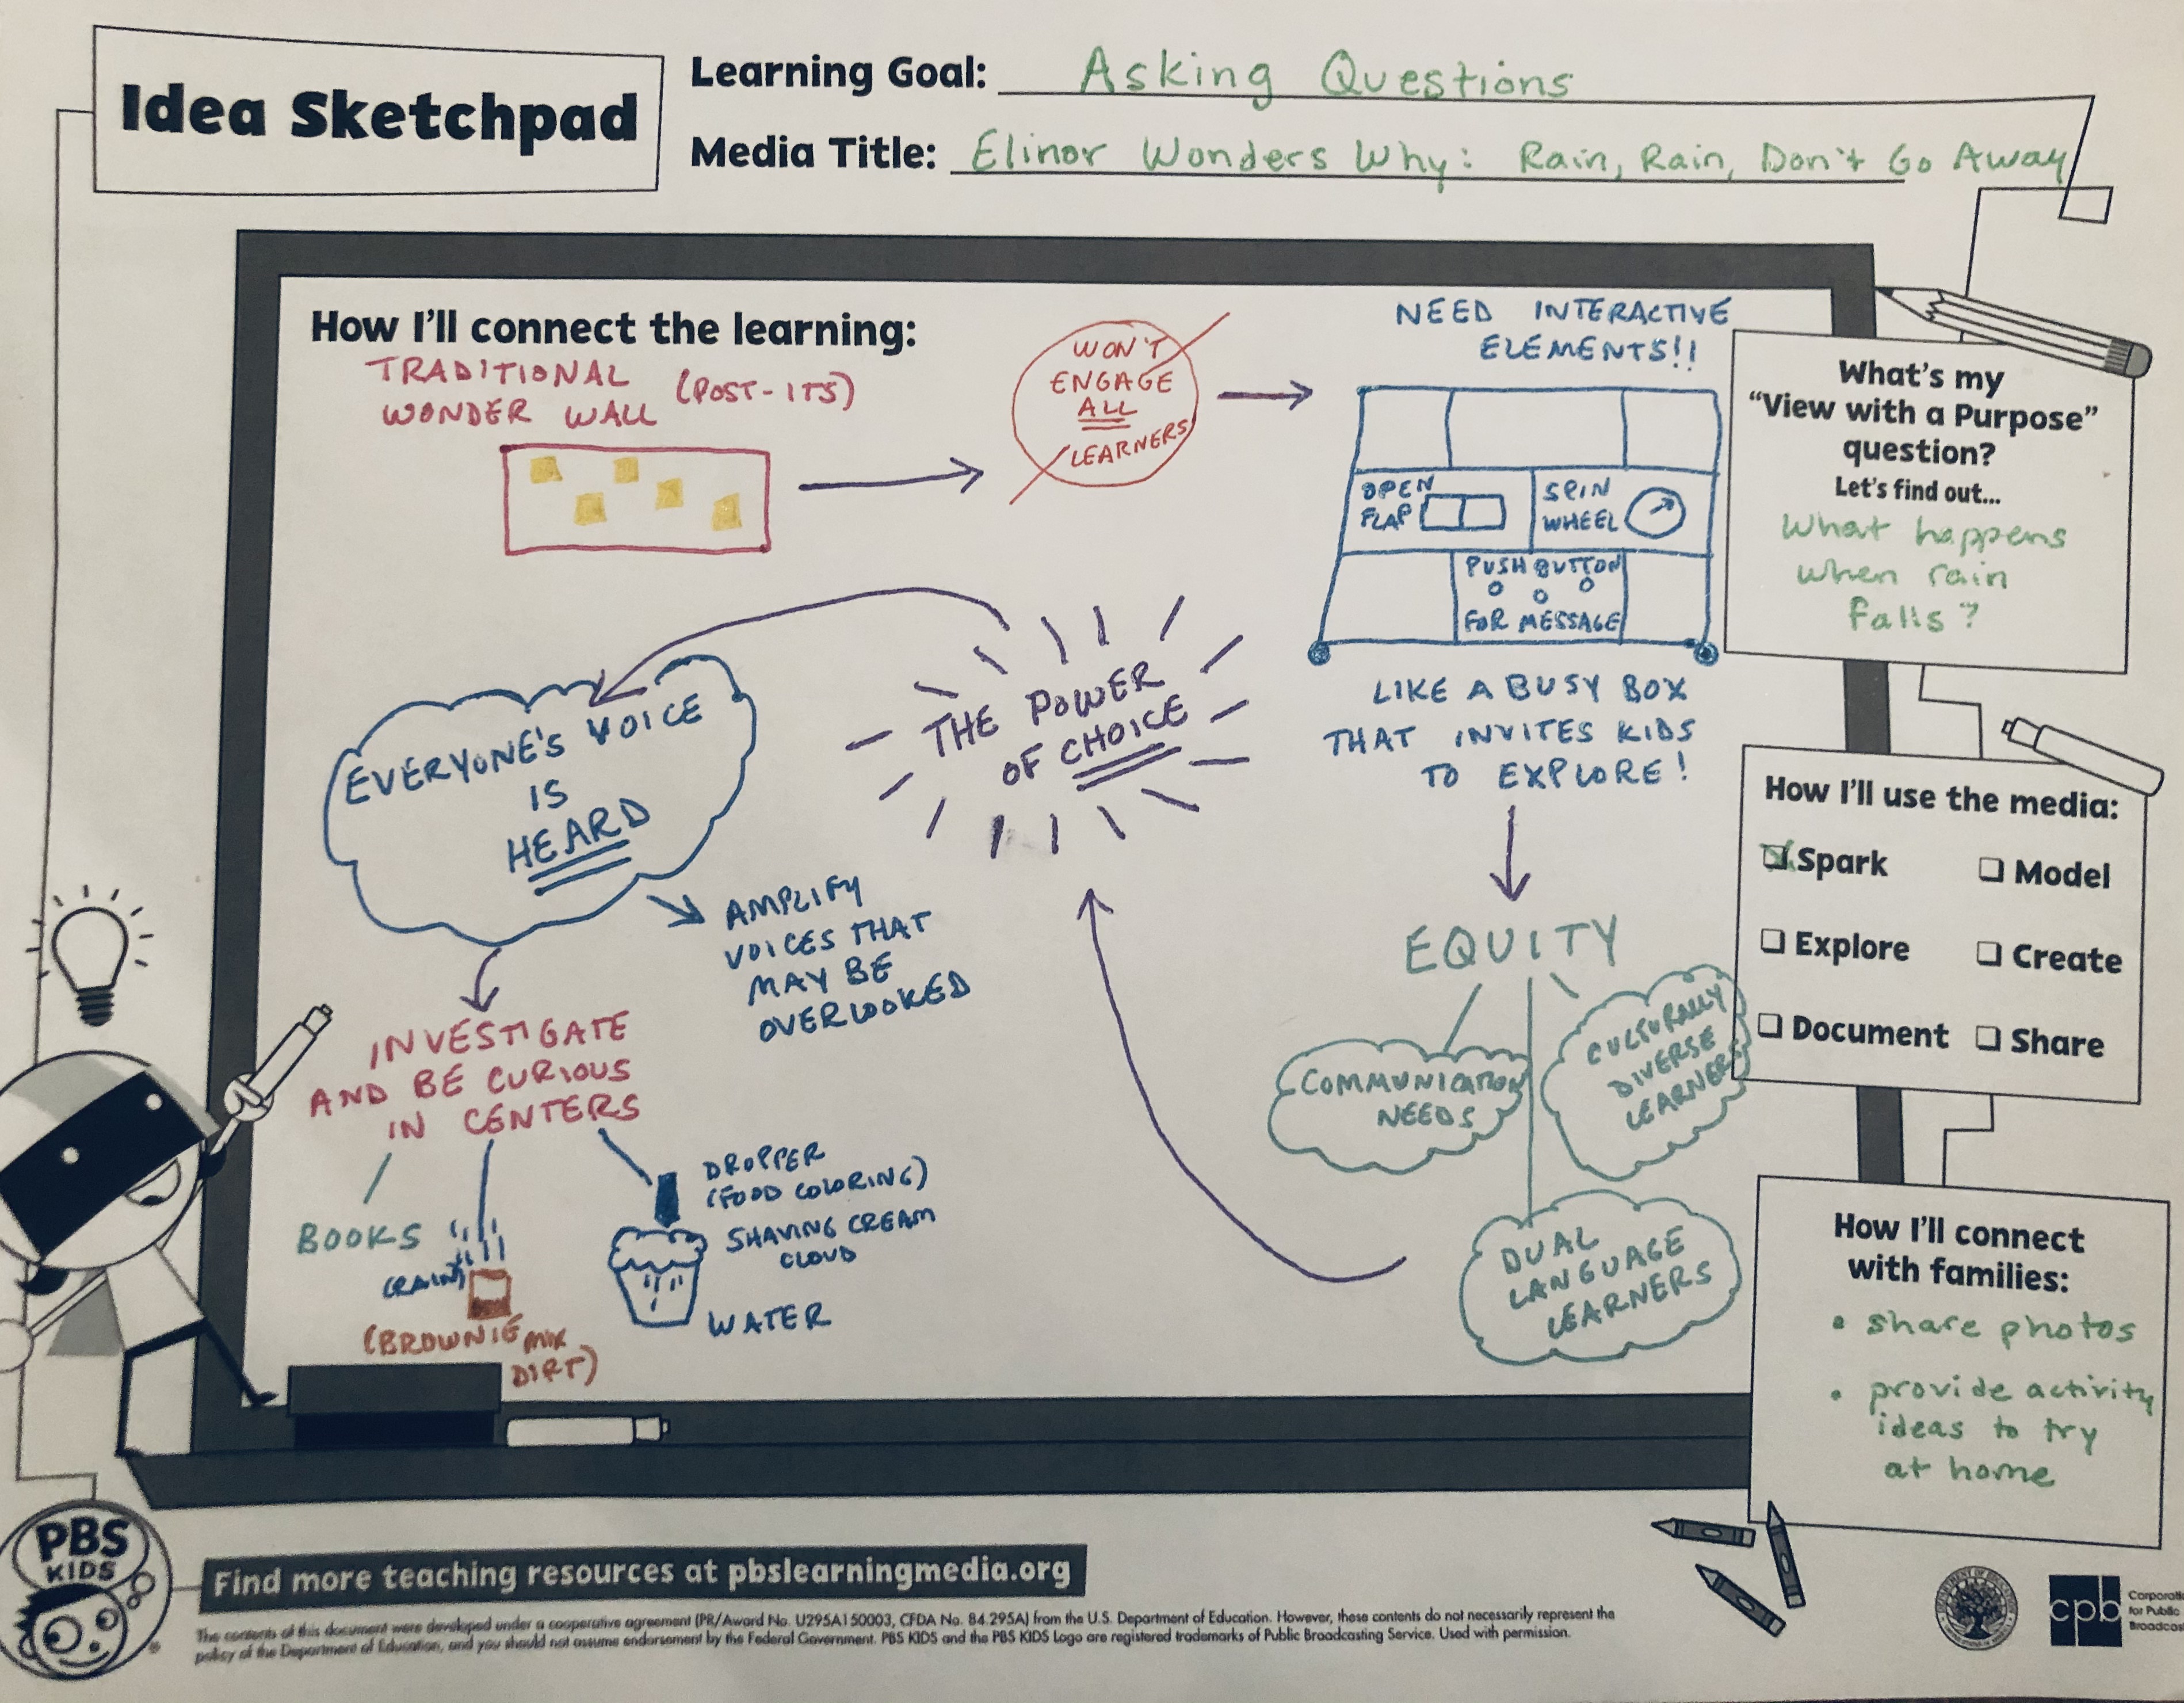 Idea Sketchpad
Learning Goal: Asking Questions
Media Title: Elinor Wonders Why: Rain, Rain, Don't Go Away
How I'll connect the learning:
TRADITIONAL
WONDER WALL (POST-ITS)
WON'T
ENGAGE
ALL
LEARNERS
NEED INTERACTIVE
ELEMENTS!!
OPEN
FLAP
SPIN
WHEEL
PUSH BUTTON
FOR MESSAGE
LIKE A BUSY BOX
THAT INVITES KIDS
TO EXPLORE!
EQUITY
COMMUNICATION
NEEDS
CULTURALLY
DIVERSE
LEARNERS
DUAL
LANGUAGE
LEARNERS
THE POWER
OF CHOICE
EVERYONE'S VOICE
IS
HEARD
AMPLIFY
VOICES THAT
MAY BE
OVERLOOKED
INVESTIGATE
AND BE CURIOUS
IN CENTERS
BOOKS
(RAIN)
(BROWNIE MIX
DIRT)
DROPPER
(FOOD COLORING)
SHAVING CREAM
CLOUD
WATER
What's my
"View with a Purpose"
question?
Let's find out...
What happens
when rain
falls?
How I'll use the media:
Spark
Model
Explore
Create
Document
Share
How I'll connect
with families:
• share photos
• provide activity
ideas to try
at home
PBS
KIDS
Find more teaching resources at pbslearningmedia.org
The contents of this document were developed under a cooperative agreement (PR/Award No. U295A150003, CFDA No. 84.295A) from the U.S. Department of Education. However, these contents do not necessarily represent the
policy of the Department of Education, and you should not assume endorsement by the Federal Government. PBS KIDS and the PBS KIDS Logo are registered trademarks of Public Broadcasting Service. Used with permission.
cpb
for Public